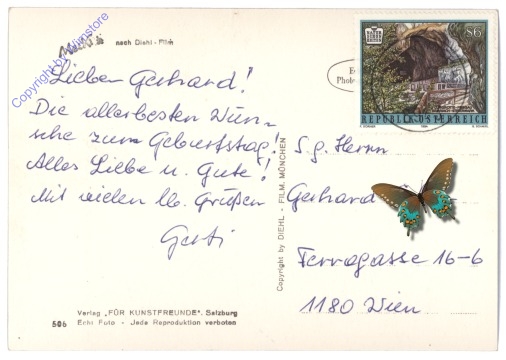 Copyright by Wnstore
nach Diehl-Film
Lieber Gerhard!
Die allerbesten Wün-
sche zum Geburtstag!
Alles Liebe u. Gute!
Mit vielen lb. Grüßen
Gerti
Verlag „FÜR KUNSTFREUNDE“, Salzburg
506 Echt Foto - Jede Reproduktion verboten
Copyright by DIEHL - FILM, MÜNCHEN
S6
REPUBLIK ÖSTERREICH
S.g. Herrn
Gerhard
Ferrogasse 16-6
1180 Wien